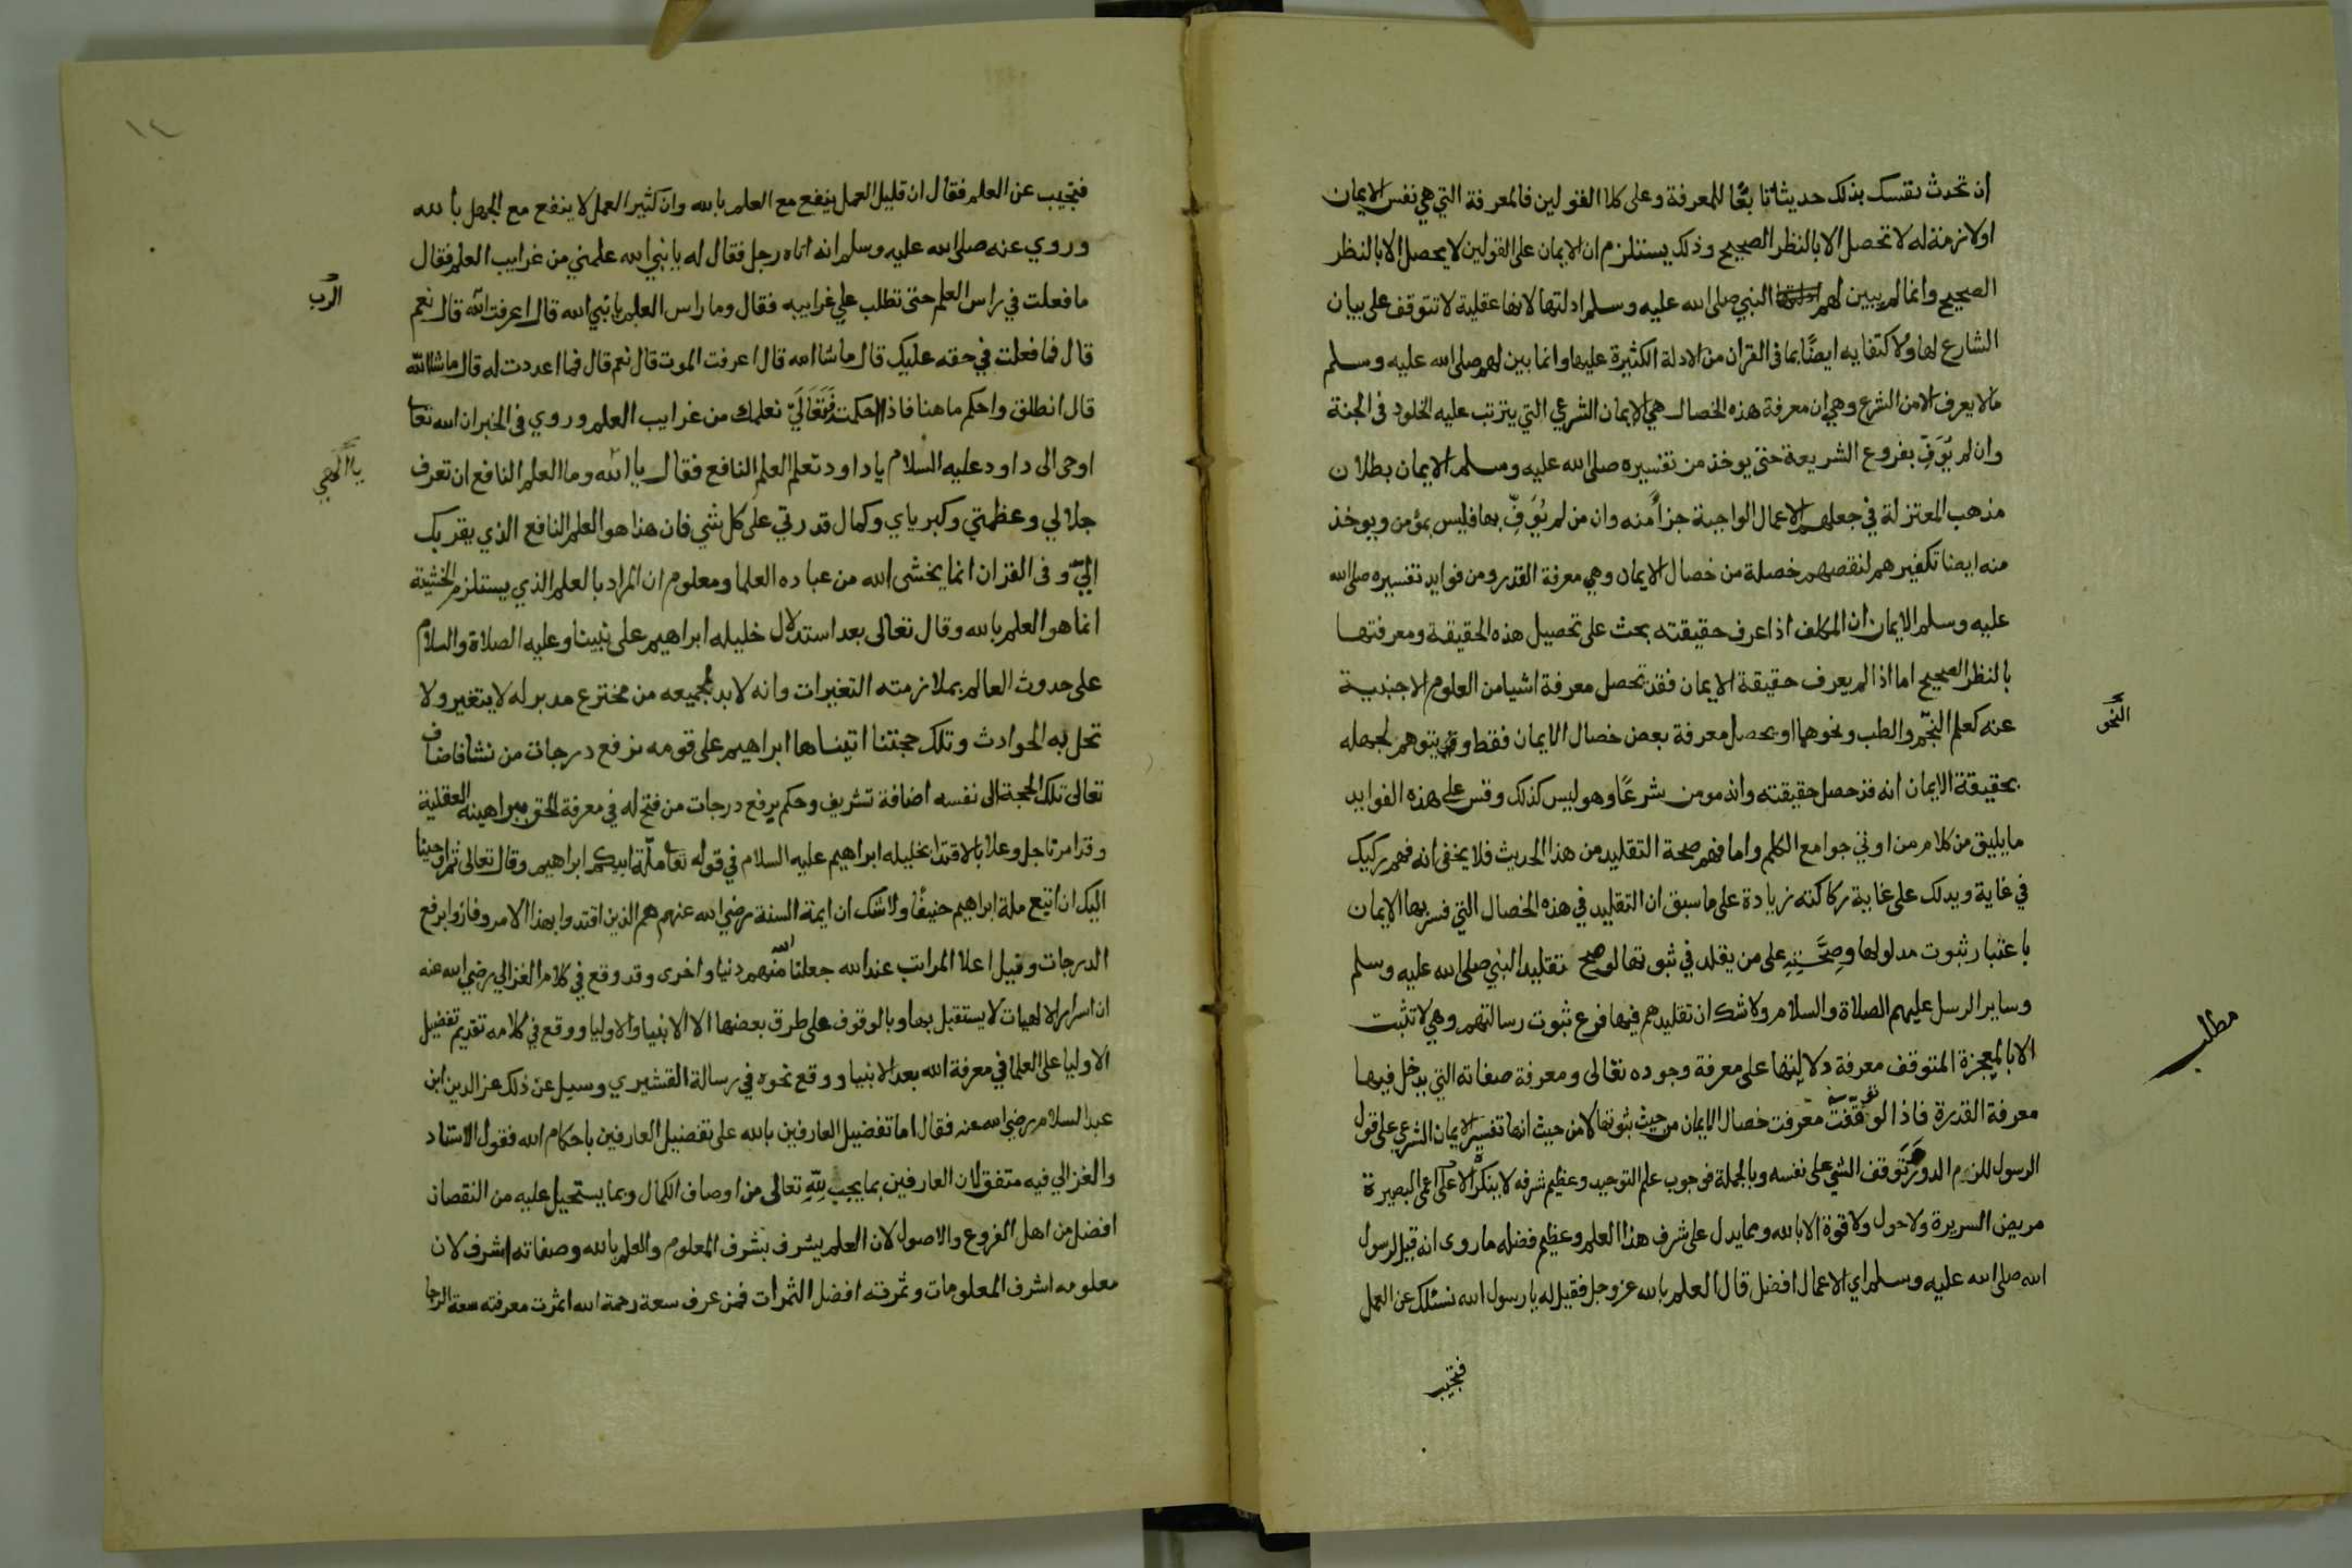 ان تحدث نفسك بذلك حديثا تابعًا للمعرفة وعلى كلا القولين فالمعرفة التي هي نفس الايمان
او لازمة له لا تحصل الا بالنظر الصحيح وذلك يستلزم ان الايمان على القولين لا يحصل الا بالنظر
الصحيح وانما لم يبين لهم النبي صلى الله عليه وسلم ادلتها لانها عقلية لا تتوقف على بيان
الشارع لها ولاكتفايه ايضًا بما في القران من الادلة الكثيرة عليها وانما بين لهم صلى الله عليه وسلم
ما لا يعرف الا من الشرع وهي ان معرفة هذه الخصال هي الايمان الشرعي التي يترتب عليه الخلود في الجنة
وان لم يُوَفِّ بفروع الشريعة حتى يوخذ من تفسيره صلى الله عليه وسلم الايمان بطلان
مذهب المعتزلة في جعلهم الاعمال الواجبة جزأ منه وان من لم يُوَفِّ بها فليس بمؤمن ويوخذ
منه ايضا تكفيرهم لنقصهم خصلة من خصال الايمان وهي معرفة القدر ومن فوايد تفسيره صلى الله
عليه وسلم الايمان ان المكلف اذا عرف حقيقته بحث على تحصيل هذه الحقيقة ومعرفتها
بالنظر الصحيح اما اذا لم يعرف حقيقة الايمان فقد تحصل معرفة اشيا من العلوم الاجنبية
عنه كعلم النجم والطب ونحوهما او يحصل معرفة بعض خصال الايمان فقط وقد يتوهم لجهله
النحو
بحقيقة الايمان انه قد حصل حقيقته وانه مومن شرعًا وهو ليس كذلك وقس على هذه الفوايد
ما يليق من كلام من اوتي جوامع الكلم واما فهم صحة التقليد من هذا الحديث فلا يخفى انه فهم ركيك
في غاية ويدلك على غاية ركاكته زيادة على ما سبق ان التقليد في هذه الخصال التي فسر بها الايمان
باعتبار ثبوت مدلولها وصحته على من يقلد في ثبوتها لو صح تقليد النبي صلى الله عليه وسلم
وساير الرسل عليهم الصلاة والسلام ولا شك ان تقليدهم فيها فرع ثبوت رسالتهم وهي لا تثبت
مطلب
الا بالمعجزة المتوقف معرفة دلالتها على معرفة وجوده تعالى ومعرفة صفاته التي يدخل فيها
معرفة القدرة فاذا لو توقفت معرفت خصال الايمان من حيث ثبوتها لا من حيث انها تفسير الايمان الشرعي على قول
الرسول للزم الدور وتوقف الشي على نفسه وبالجملة فوجوب علم التوحيد وعظيم شرفه لا ينكره الا اعمى البصيرة
مريض السريرة ولا حول ولا قوة الا بالله ومما يدل على شرف هذا العلم وعظيم فضله ما روى انه قيل لرسول
الله صلى الله عليه وسلم اي الاعمال افضل قال العلم بالله عز وجل فقيل له يا رسول الله نسئلك عن العمل
فتجيب
١٤
فتجيب عن العلم فقال ان قليل العمل ينفع مع العلم بالله وان كثير العمل لا ينفع مع الجهل بالله
وروي عنه صلى الله عليه وسلم انه اتاه رجل فقال له يا نبي الله علمني من غرايب العلم فقال
ما فعلت في راس العلم حتى تطلب علي غرايبه فقال وما راس العلم يا نبي الله قال اعرفت الله قال نعم
الرب
قال فما فعلت في حقه عليك قال ما شا الله قال اعرفت الموت قال نعم قال فما اعددت له قال ما شا الله
قال انطلق واحكم ما هنا فاذا احكمت فتعالى نعلمك من غرايب العلم وروي في الخبر ان الله تعا
اوحى الى داود عليه السلام يا داود تعلم العلم النافع فقال يا الله وما العلم النافع ان تعرف
يا الهي
جلالي وعظمتي وكبرياي وكمال قدرتي على كل شي فان هذا هو العلم النافع الذي يقربك
اليّ وفى القران انما يخشى الله من عباده العلما ومعلوم ان المراد بالعلم الذي يستلزم الخشية
انما هو العلم بالله وقال تعالى بعد استدلال خليله ابراهيم على نبينا وعليه الصلاة والسلام
على حدوث العالم بملازمته التغيرات وانه لا بد لجميعه من مخترع مدبر له لا يتغير ولا
تحل به الحوادث وتلك حجتنا اتيناها ابراهيم على قومه نرفع درجات من نشا فاضاف
تعالى تلك الحجة الى نفسه اضافة تشريف وحكم برفع درجات من فتح له في معرفة الحق ببراهينه العقلية
وقد امرنا جل وعلا بالاقتدا بخليله ابراهيم عليه السلام في قوله تعا ملّة ابيكم ابراهيم وقال تعالى ثم اوحينا
اليك ان اتبع ملة ابراهيم حنيفًا ولا شك ان ايمة السنة رضي الله عنهم هم الذين اقتدوا بهذا الامر وفازوا برفع
الدرجات وقيل اعلا المراتب عند الله جعلنا الله منهم دنيا واخرى وقد وقع في كلام الغزالي رضي الله عنه
ان اسرار الالهيات لا يستقبل بها وبالوقوف على طرق بعضها الا الانبيا والاوليا ووقع في كلامه تقديم تفضيل
الاوليا على العلما في معرفة الله بعد الانبيا ووقع نحوه في رسالة القشيري وسيل عن ذلك عز الدين ابن
عبد السلام رضي الله عنه فقال اما تفضيل العارفين بالله على تفضيل العارفين باحكام الله فقول الاستاد
والغزالي فيه متفق لان العارفين بما يجب لله تعالى من اوصاف الكمال وبما يستحيل عليه من النقصان
افضل من اهل الفروع والاصول لان العلم يشرف بشرف المعلوم والعلم بالله وصفاته اشرف لان
معلومه اشرف المعلومات وثمرته افضل الثمرات فمن عرف سعة رحمة الله اثمرت معرفته سعة الرجا